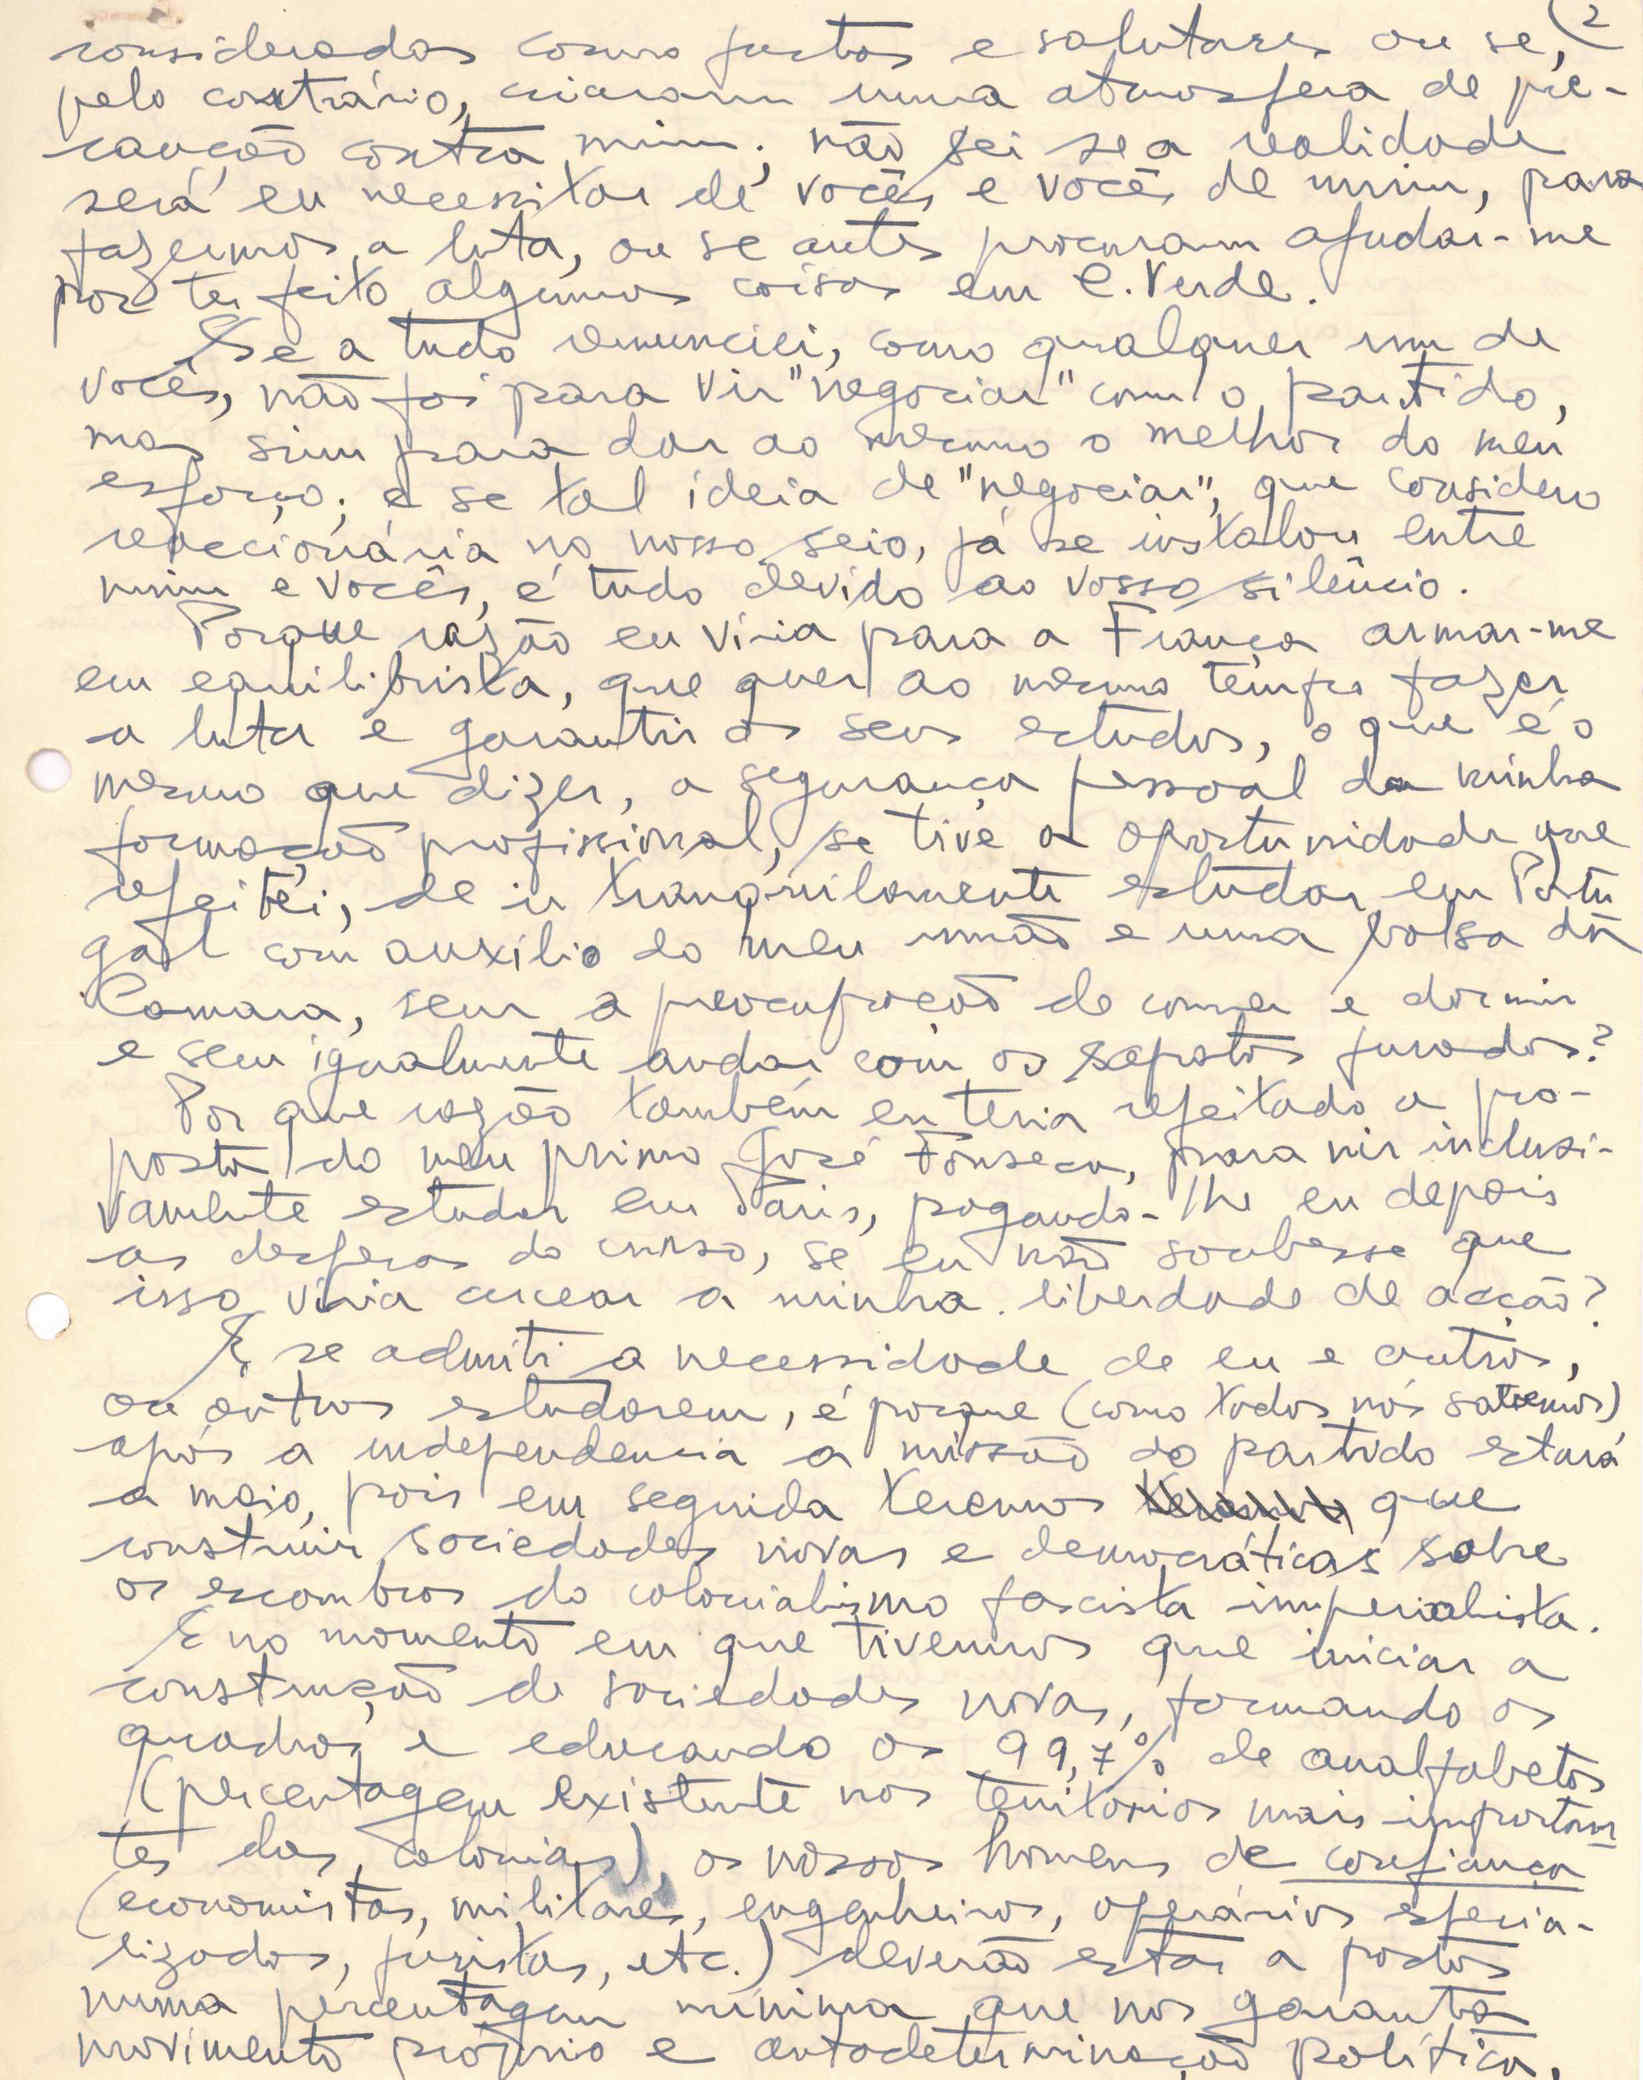 (2
considerados como justos e salutares ou se,
pelo contrário, criaram uma atmosfera de pre-
caução contra mim; não sei se a realidade
será eu necessitar de vocês e vocês de mim, para
fazermos a luta, ou se antes procuram ajudar-me
por ter feito algumas coisas em C. Verde.
Se a tudo renunciei, como qualquer um de
vocês, não foi para vir "negociar" com o partido,
mas sim para dar ao mesmo o melhor do meu
esforço; e se tal ideia de "negociar", que considero
reaccionária no nosso seio, já se instalou entre
mim e vocês, é tudo devido ao vosso silêncio.
Porque razão eu viria para a França armar-me
em equilibrista, que quer ao mesmo tempo fazer
a luta e garantir os seus estudos, o que é o
mesmo que dizer, a segurança pessoal da minha
formação profissional, se tive a oportunidade que
rejeitei, de ir tranquilamente estudar em Portu
gal com auxílio do meu irmão e uma bolsa da
Camara, sem a preocupação de comer e dormir
e sem igualmente andar com os sapatos furados?
Por que razão também eu teria rejeitado a pro-
posta do meu primo José Fonseca, para vir inclusi-
vamente estudar em Paris, pagando-lhe eu depois
as despesas do curso, se eu não soubesse que
isso viria cercear a minha liberdade de acção?
E se admiti a necessidade de eu e outros,
ou outros estudarem, é porque (como todos nós sabemos)
após a independencia a missão do partido estará
a meio, pois em seguida teremos que
construir sociedades novas e democráticas sobre
os escombros do colonialismo fascista imperialista.
E no momento em que tivermos que iniciar a
construção de sociedades novas, formando os
quadros e educando os 99,7% de analfabetos
(percentagem existente nos territorios mais importan
tes das colonias), os nossos homens de confiança
(economistas, militares, engenheiros, operários especia-
lizados, juristas, etc.) deverão estar a postos
numa percentagem mínima que nos garanta
movimento próprio e autodeterminação política,